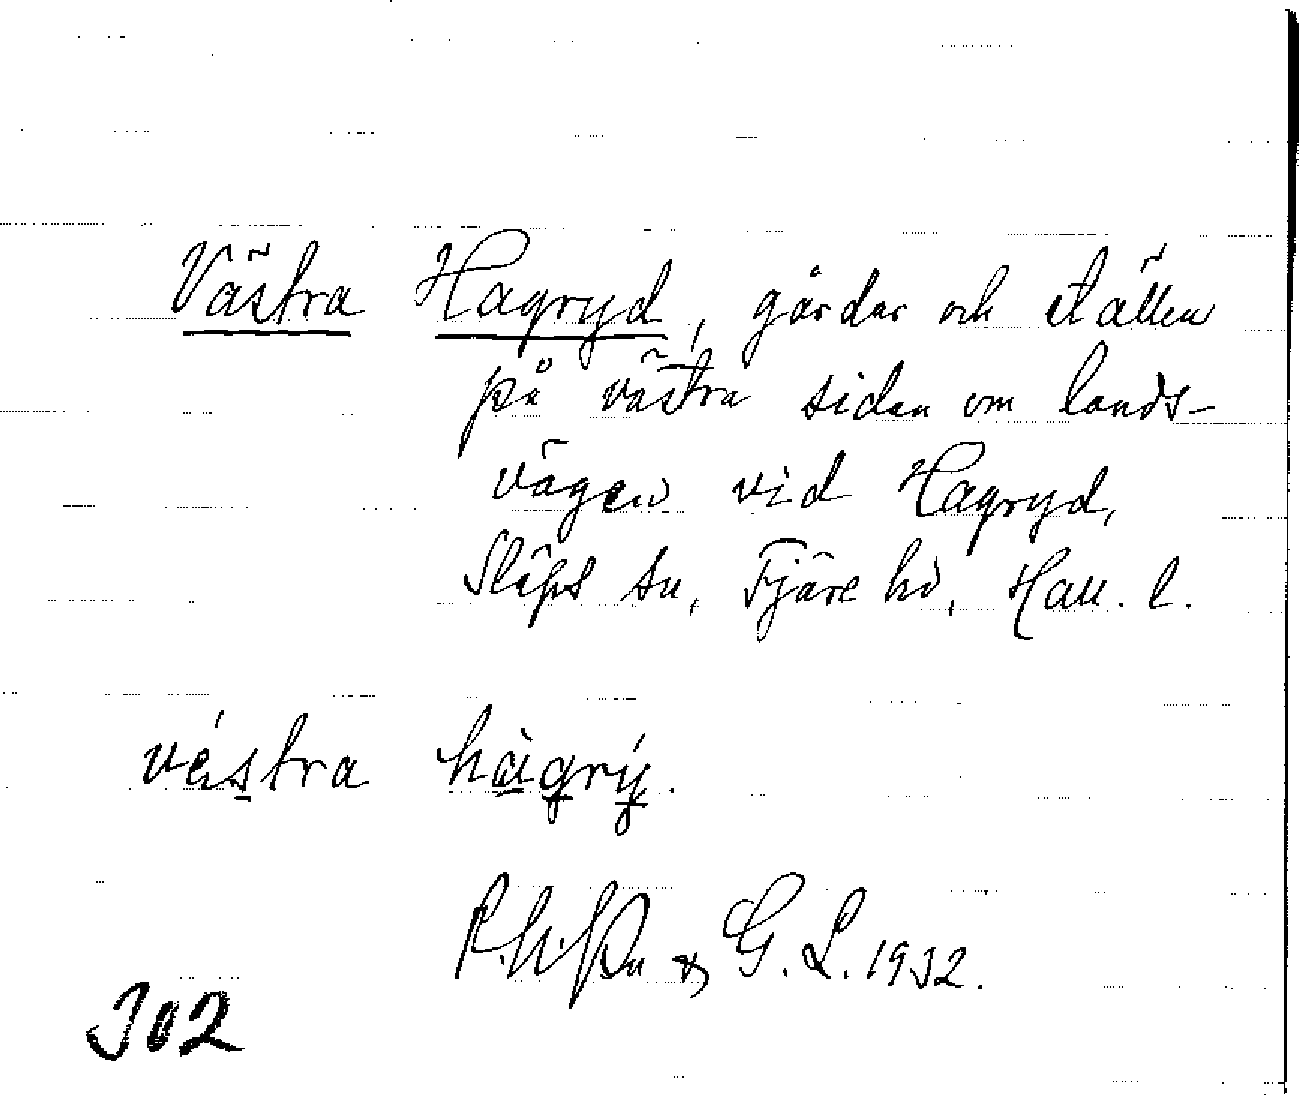 Västra Hagryd, gårdar och ställen
på västra sidan om lands-
vägen vid Hagryd,
Släps sn, Fjäre hd, Hall. l.
véstra hàgrý.
G. L. 1932.
302